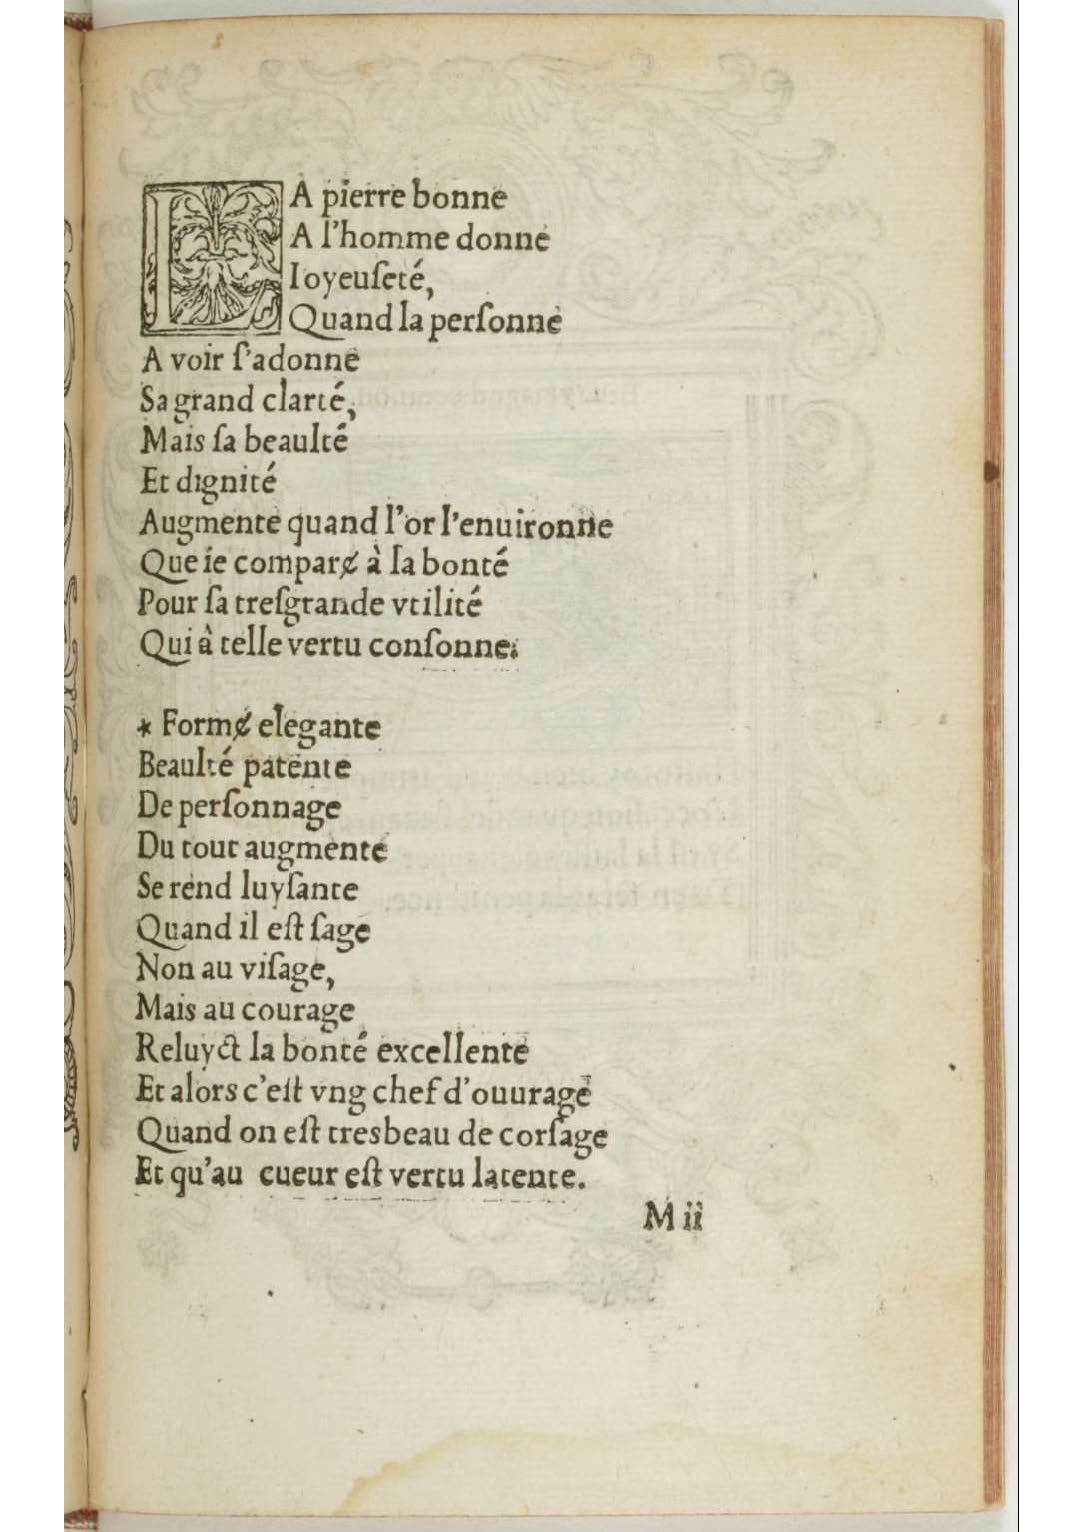 LA pierre bonne
A l'homme donne
Ioyeuſeté,
Quand la perſonne
A voir ſ'adonne
Sa grand clarté,
Mais ſa beaulté
Et dignité
Augmente quand l'or l'enuironne
Que ie comparɇ à ſa bonté
Pour ſa treſgrande vtilité
Qui à telle vertu conſonne.

* Formɇ elegante
Beaulté patente
De perſonnage
Du tout augmente
Se rend luyſante
Quand il eſt ſage
Non au viſage,
Mais au courage
Reluyct la bonté excellente
Et alors c'eſt vng chef d'ouurage
Quand on eſt tresbeau de corſage
Et qu'au cueur eſt vertu latente.
M ii